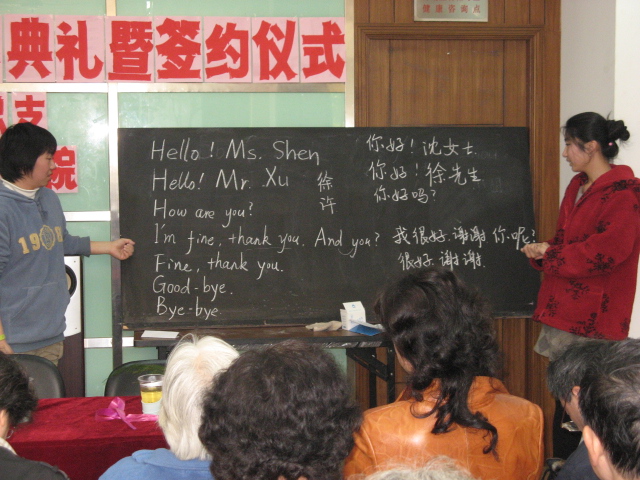 典礼暨签约仪式
支
院
健康咨询点
Hello! Ms. Shen 你好！沈女士
Hello! Mr. Xu 徐 你好！徐先生
How are you? 许 你好吗？
I'm fine, thank you. And you? 我很好.谢谢 你呢?
Fine, thank you. 很好.谢谢.
Good-bye.
Bye-bye